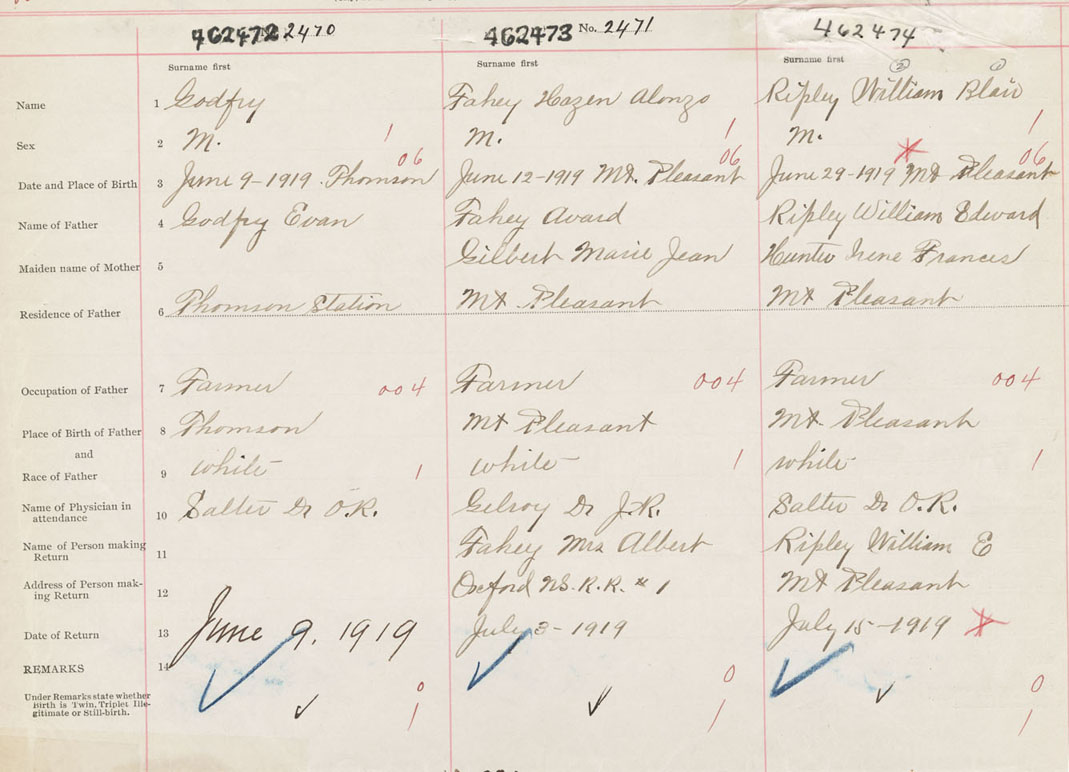 462472 2470 462473 No. 2471 462474
Surname first Surname first Surname first
Name 1 Godfry Fahey Hazen Alonzo Ripley William Blair
Sex 2 M. 1 M. 1 M. 1
Date and Place of Birth 3 June 9-1919. Thomson 06 June 12-1919 Mt. Pleasant 06 June 29-1919 Mt Pleasant 06
Name of Father 4 Godfry Evan Fahey Avard Ripley William Edward
Maiden name of Mother 5 Gilbert Marie Jean Hunter Irene Frances
Residence of Father 6 Thomson Station Mt Pleasant Mt Pleasant
Occupation of Father 7 Farmer 004 Farmer 004 Farmer 004
Place of Birth of Father 8 Thomson Mt Pleasant Mt Pleasant
and
Race of Father 9 white 1 white 1 white 1
Name of Physician in
attendance 10 Salter Dr O.R. Gilroy Dr J.R. Salter Dr O.R.
Name of Person making
Return 11 Fahey Mrs Albert Ripley William E
Address of Person mak-
ing Return 12 Oxford N.S. R.R. # 1 Mt Pleasant
Date of Return 13 June 9, 1919 July 3-1919 July 15-1919
REMARKS 14
Under Remarks state whether 0 0 0
Birth is Twin, Triplet Ille-
gitimate or Still-birth. 1 1 1